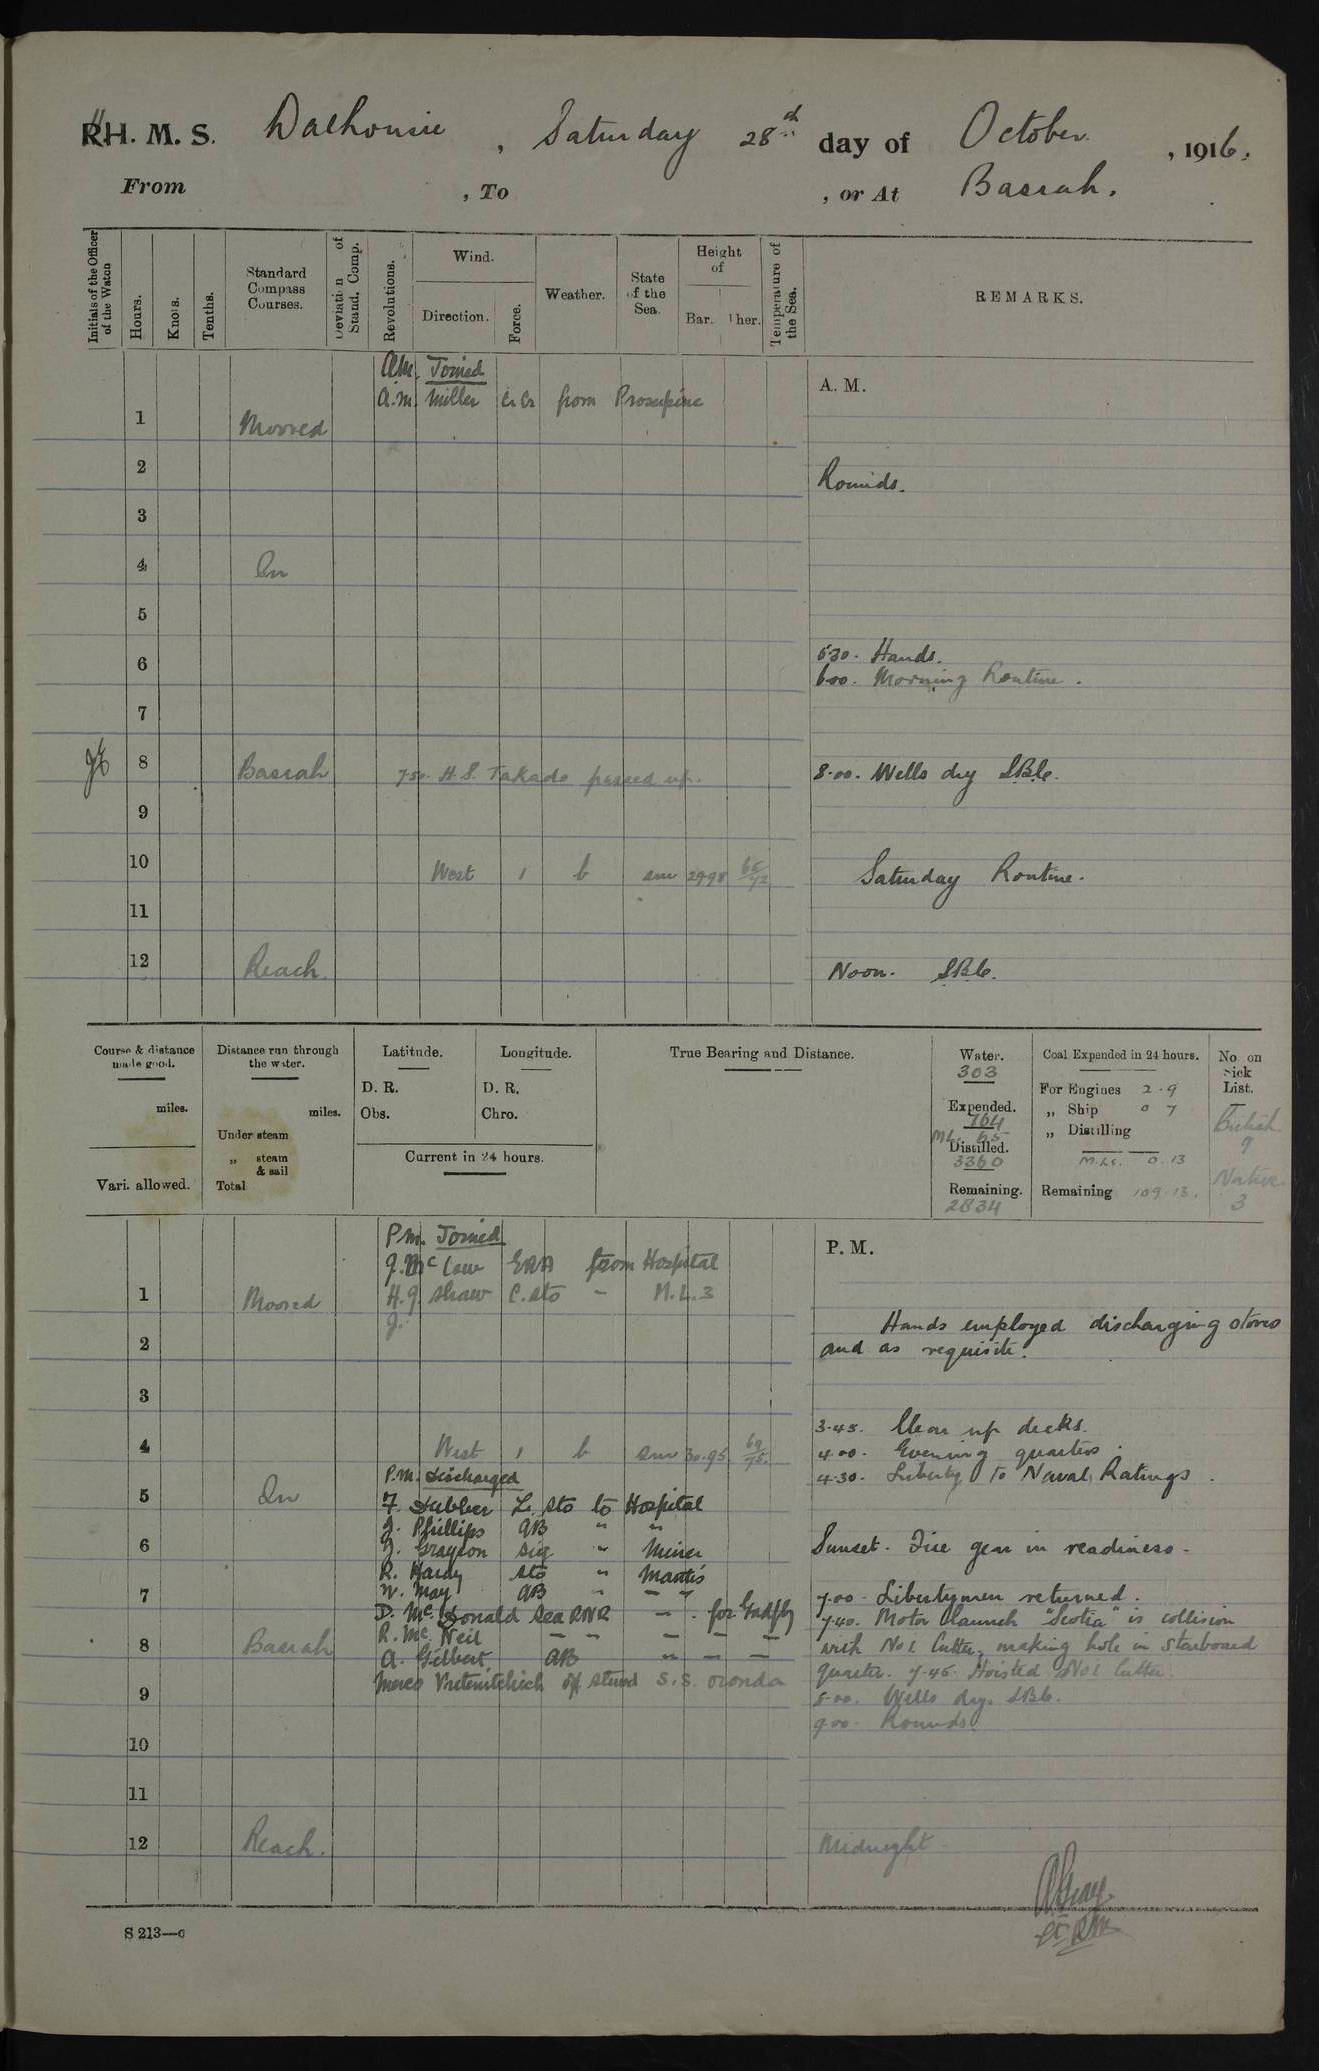 H. M. S. Dalhousie, Saturday 28th day of October, 1916.
From , To , or At Basrah.
Initials of the Officer of the Watch
Hours.
Knots.
Tenths.
Standard Compass Courses.
Deviation of Stand. Comp.
Revolutions.
Wind.
Direction.
Force.
Weather.
State of the Sea.
Height of
Bar.
Ther.
Temperature of the Sea.
REMARKS.
A.M. Joined
A. M. A.m. Miller from Proserpine
1 Moored
2 Rounds.
3
4 In
5
6 5.30. Hands.
6.00. Morning Routine.
7
8 Basrah 7.50. H.S. Takada passed up. 8.00. Wells dry
9
10 West 1 b sm 29.98 Saturday Routine.
11
12 Reach. Noon.
Course & distance made good.
miles.
Vari. allowed.
Distance run through the water.
miles.
Under steam
„ steam & sail
Total
Latitude.
D. R.
Obs.
Longitude.
D. R.
Chro.
Current in 24 hours.
True Bearing and Distance.
Water.
303
Expended.
764
M.L. 65
Distilled.
3360
Remaining.
2834
Coal Expended in 24 hours.
For Engines 2.9
„ Ship 0 7
„ Distilling
M.Ls. 0.13
Remaining 109.13.
No. on Sick List.
British
9
Native
3
P.M. Joined
P. M. J. McCaw ERA from Hospital
1 Moored H.J. Shaw C. Sto - M.L.3
J.
Hands employed discharging stores
2 and as requisite.
3
3.45. Clear up decks.
4 West 1 b sm 30.95 69/75. 4.00. Evening quarters.
P.M. Discharged 4.30. Liberty to Naval Ratings.
5 In F. Dubber L. Sto to Hospital
J. Phillips AB " "
6 J. Grayson Sig " Miner Sunset. Fire gear in readiness.
R. Hardy Sto " Mantis
7 W. May AB " — — 7.00. Libertymen returned.
D. McDonald Sea RNR — . for Gadfly 7.40. Motor Launch "Scotia" in collision
R. McNeil — — — — —
8 Basrah with No 1 Cutter, making hole in starboard
A. Gilbert AB " — —
quarter. 7.45. Hoisted No 1 Cutter.
off stew'd S.S. Oronda
9 8.00. Wells dry.
9.00. Rounds.
10
11
12 Reach. Midnight
A Gray
S 213—c